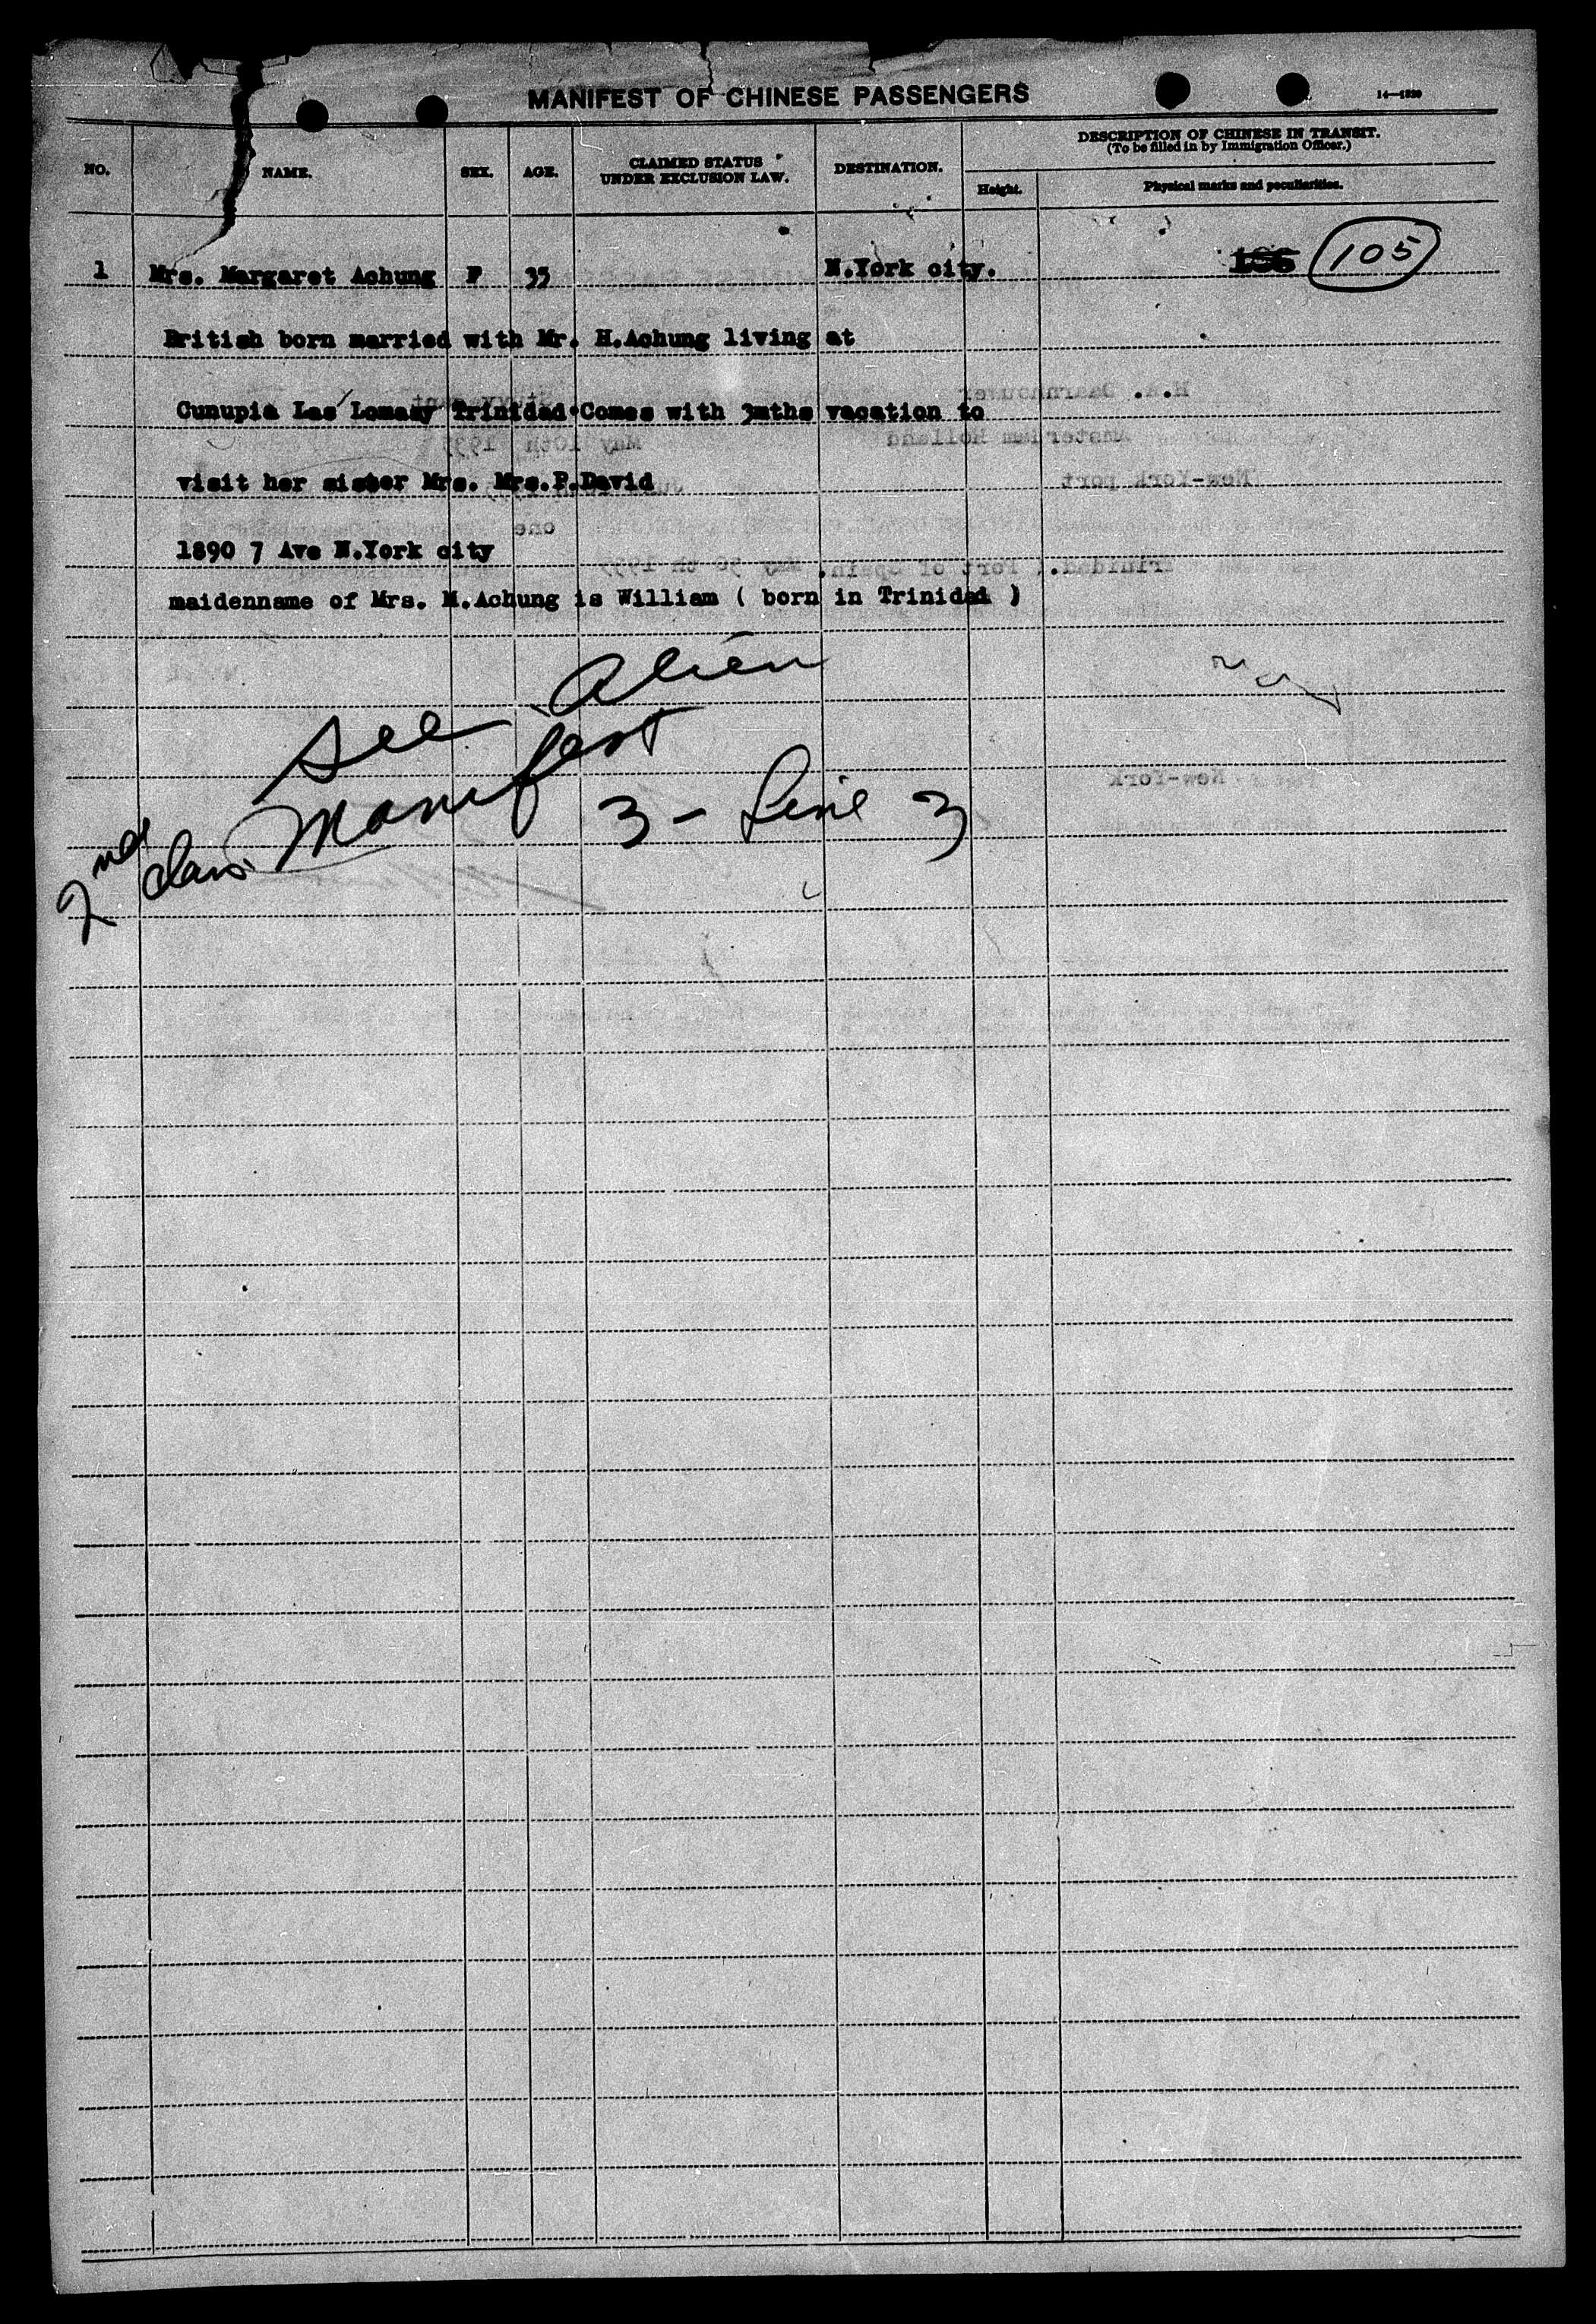 MANIFEST OF CHINESE PASSENGERS
14—1520
NO.
NAME.
SEX.
AGE.
CLAIMED STATUS
UNDER EXCLUSION LAW.
DESTINATION.
DESCRIPTION OF CHINESE IN TRANSIT.
(To be filled in by Immigration Officer.)
Height.
Physical marks and peculiarities.
1 Mrs. Margaret Achung F 35 N.York city. 105
British born married with Mr. H.Achung living at
Cunupia Las Trinidad Comes with 3mths vacation to
visit her sister Mrs. Mrs.P.David
1890 7 Ave N.York city
maidenname of Mrs. M.Achung is William ( born in Trinidad )
See Alien
Manifest
2nd class
3 - Line 3